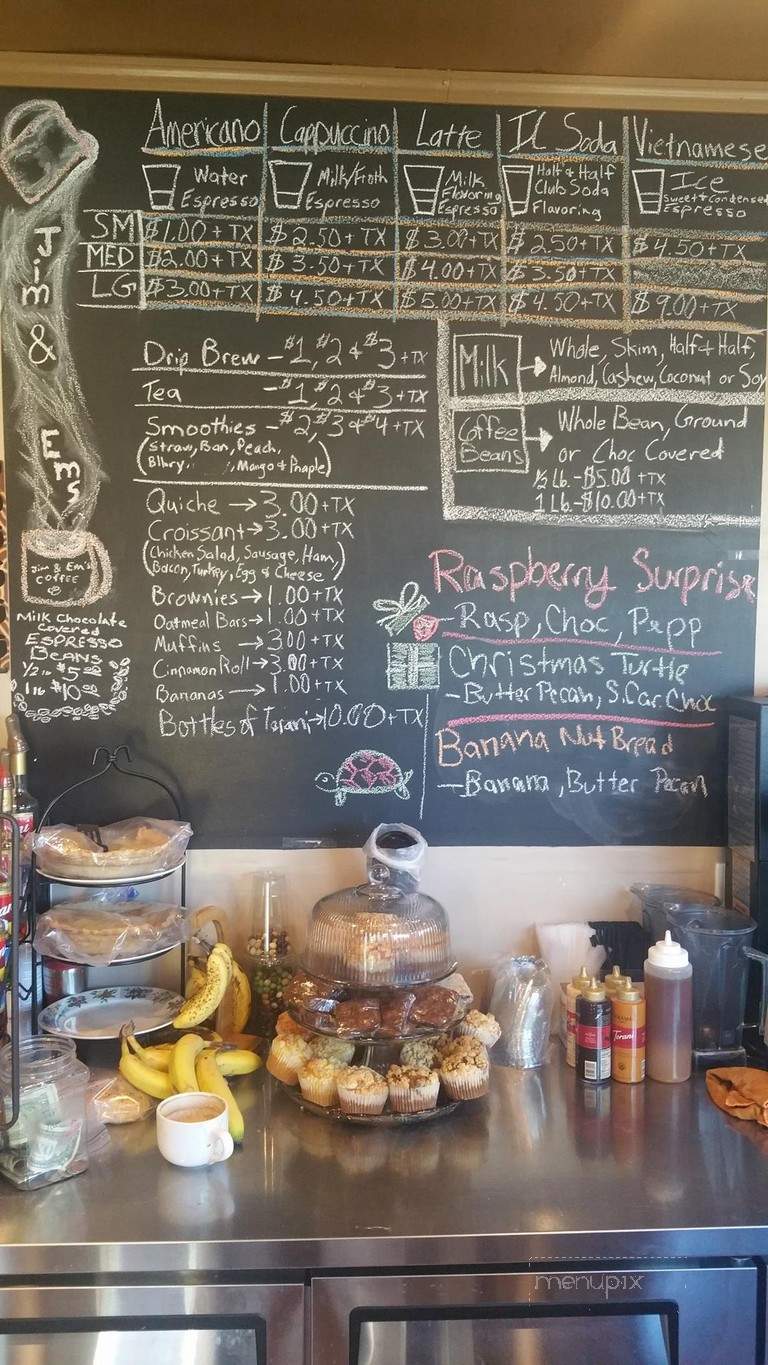 Americano Cappuccino Latte It Soda Vietnamese
Water Espresso
Milk/Froth Espresso
Milk Flavoring Espresso
Half & Half Club Soda Flavoring
Ice Sweet & Condensed Espresso
SM $1.00+TX $2.50+TX $3.00+TX $2.50+TX $4.50+TX
MED $2.00+TX $3.50+TX $4.00+TX $3.50+TX
LG $3.00+TX $4.50+TX $5.00+TX $4.50+TX $9.00+TX
Jim & Em's
Jim & Em's
COFFEE
Milk Chocolate
Covered
ESPRESSO
BEANS
1/2 lb $5.00
1 lb $10.00
Drip Brew - $1, $2 & $3 +TX
Tea - $1, $2 & $3 +TX
Smoothies - $2, $3 & $4 +TX
(Straw, Ban, Peach,
Blbry, , Mango & Pnaple)
Quiche → 3.00+TX
Croissant → 3.00+TX
(Chicken Salad, Sausage, Ham,
Bacon, Turkey, Egg & Cheese)
Brownies → 1.00+TX
Oatmeal Bars → 1.00+TX
Muffins → 3.00+TX
Cinnamon Roll → 3.00+TX
Bananas → 1.00+TX
Bottles of Torani → 10.00+TX
Milk → Whole, Skim, Half & Half,
Almond, Cashew, Coconut or Soy
Coffee Beans → Whole Bean, Ground
or Choc Covered
1/2 Lb. - $5.00 +TX
1 Lb. - $10.00+TX
Raspberry Surprise
- Rasp, Choc, Pepp
Christmas Turtle
- Butter Pecan, S. Car. Choc
Banana Nut Bread
- Banana, Butter Pecan
Torani
menupix